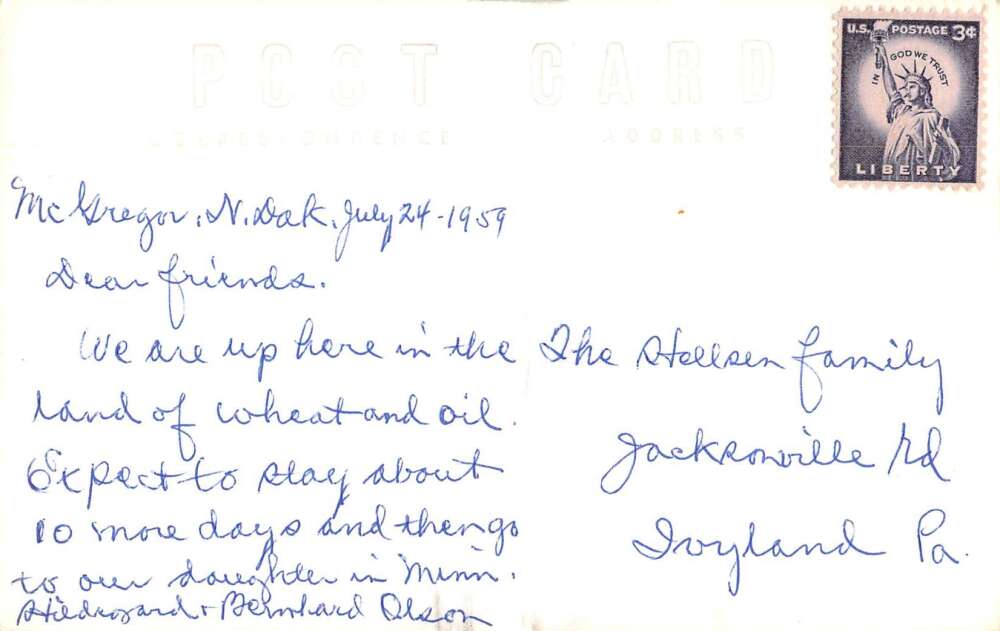 POST CARD
CORRESPONDENCE ADDRESS
U.S. POSTAGE 3¢
IN GOD WE TRUST
LIBERTY
McGregor, N. Dak, July 24-1959
Dear friends.
We are up here in the
land of wheat and oil.
Expect to stay about
10 more days and then go
to our daughter in Minn.
Hildegard + Bernhard Olson
The family
Jacksonville Rd
Ivyland Pa.